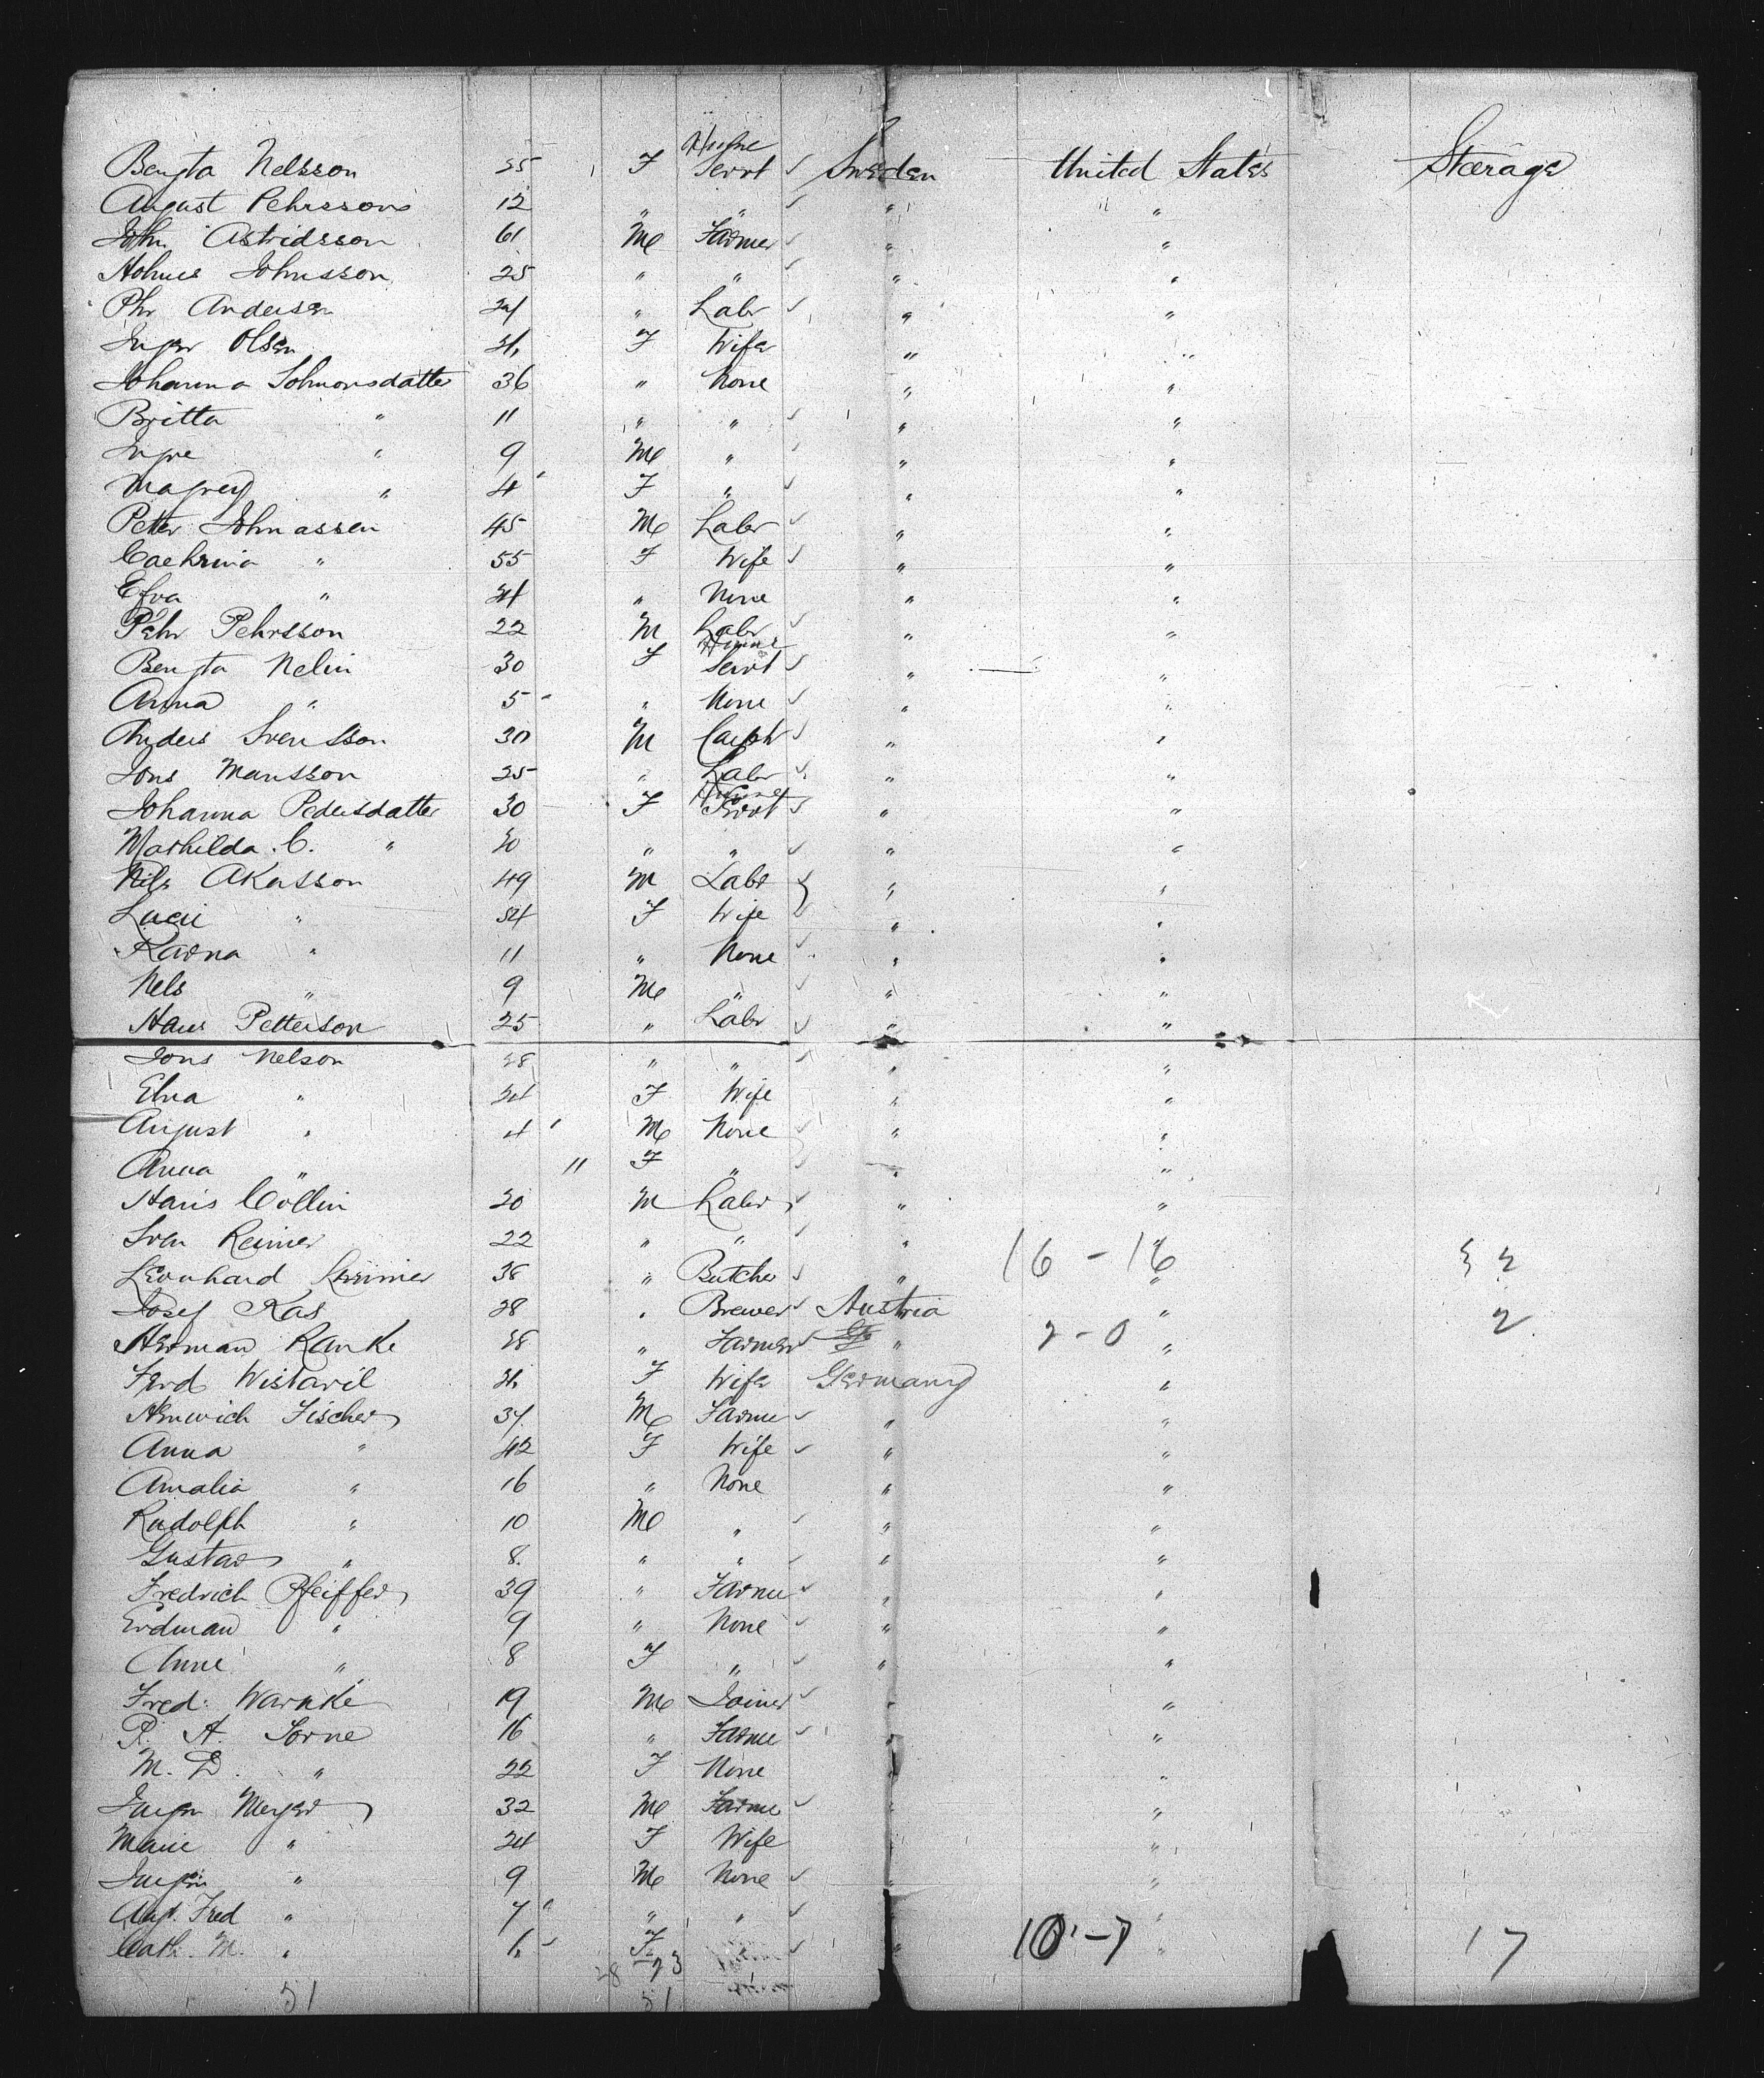 Bengta Nelsson 25 F House Servt Sweden United States Steerage
August Pehrssons 12 " " " "
John Astridsson 61 M Farmer " "
Johnsson 25 " " " "
Phr Andersen 24 " Labr " "
Inger Olsen F Wife " "
Johanna Solmonsdatter 36 " None " "
Britta " 11 " " " "
Ingre " 9 M " " "
" 4 F " " "
Peter Johnassen 45 M Labr " "
Cachrina " 55 F Wife " "
Efva " " None " "
Pehr Pehrsson 22 M Labr " "
Bengta Nelin 30 F House Servt " "
Anna " 5 " None " "
Anders Svensson 30 M Carptr " "
Jons Mansson 25 " Labr " "
Johanna Pedersdatter 30 F House Servt " "
Mathilda C. " 20 " " " "
Nils Akasson 49 M Labr " "
Lucie " 54 F Wife " "
Karna " 11 " None " "
Nels " 9 M " " "
Hans Petterson 25 " Labr " "
Jons Nelson 28 " " " "
Elna " 24 F Wife " "
August " 4 M None " "
Anna " 11 F " " "
Hans Collin 20 M Labr " "
Sven Reimer 22 " " " " 16 - 16 32
Leonhard 38 " Butcher " "
Josef Kas 28 " Brewer Austria "
Herman Ranke 28 " Farmer " " 2 - 0 2
Ferd Wistaril F Wife Germany "
Heinrich Fischer 37 M Farmer " "
Anna " 42 F Wife " "
Amalia " 16 " None " "
Rudolph " 10 M " " "
Gustav " 8 " " " "
Fredrich Pfeiffer 39 " Farmer " "
Erdman " 9 " None " "
Anne " 8 F " " "
Fred. Warnke 19 M Joiner " "
P. A. Sorne 16 " Farmer "
M. D. " 22 F None "
Jurgen Meyer 32 M Farmer " "
Marie " 24 F Wife "
Jurgen " 9 M None " "
Aug. Fred " 7 " " "
Cath. M. " F " " 10 - 7 17
28 23
51 51